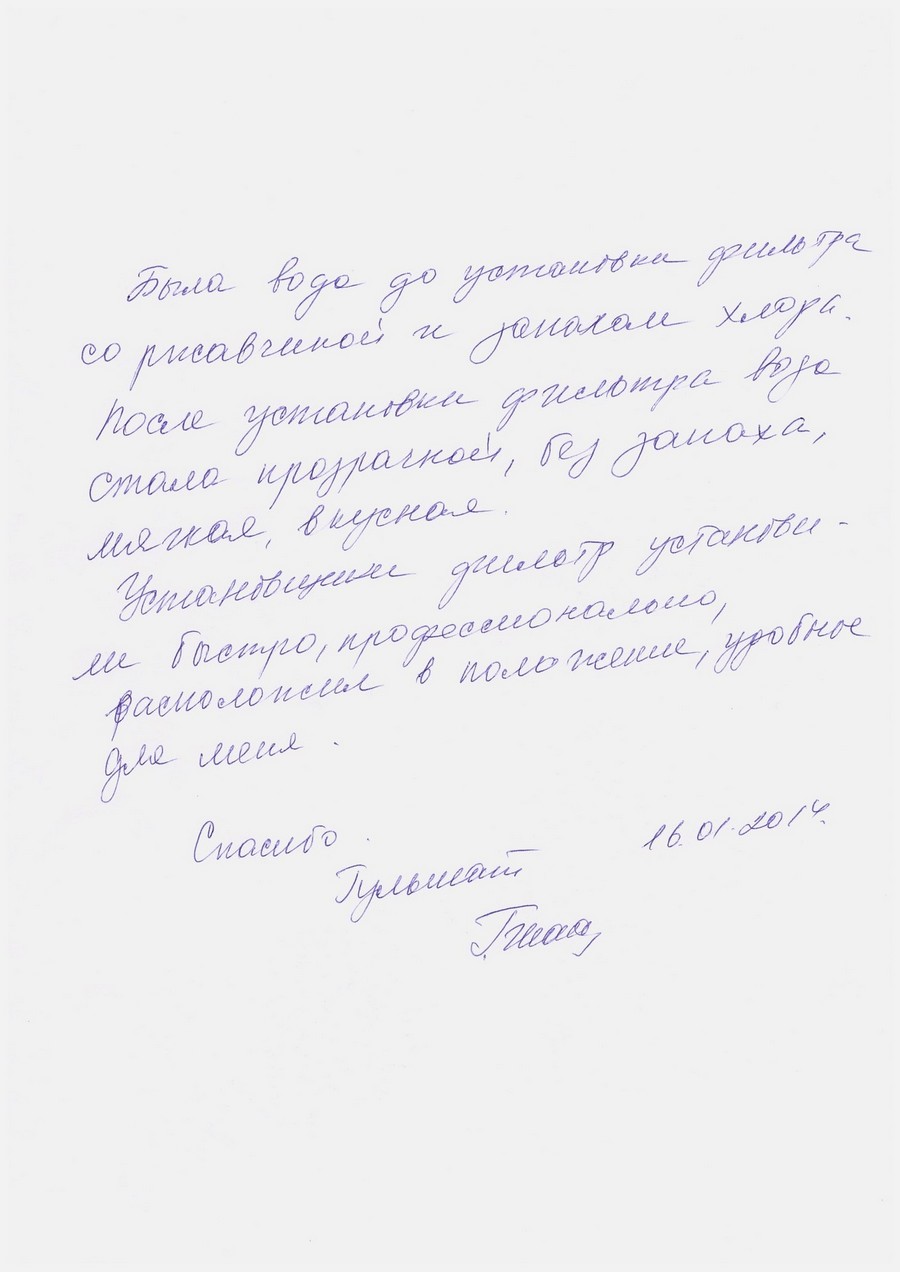 Была вода до установки фильтра
со ржавчиной и запахом хлора.
После установки фильтра вода
стала прозрачной, без запаха,
мягкая, вкусная.
Установщики фильтр установи-
ли быстро, профессионально,
расположил в положение, удобное
для меня.
Спасибо.
16.01.2014.
Гульшат